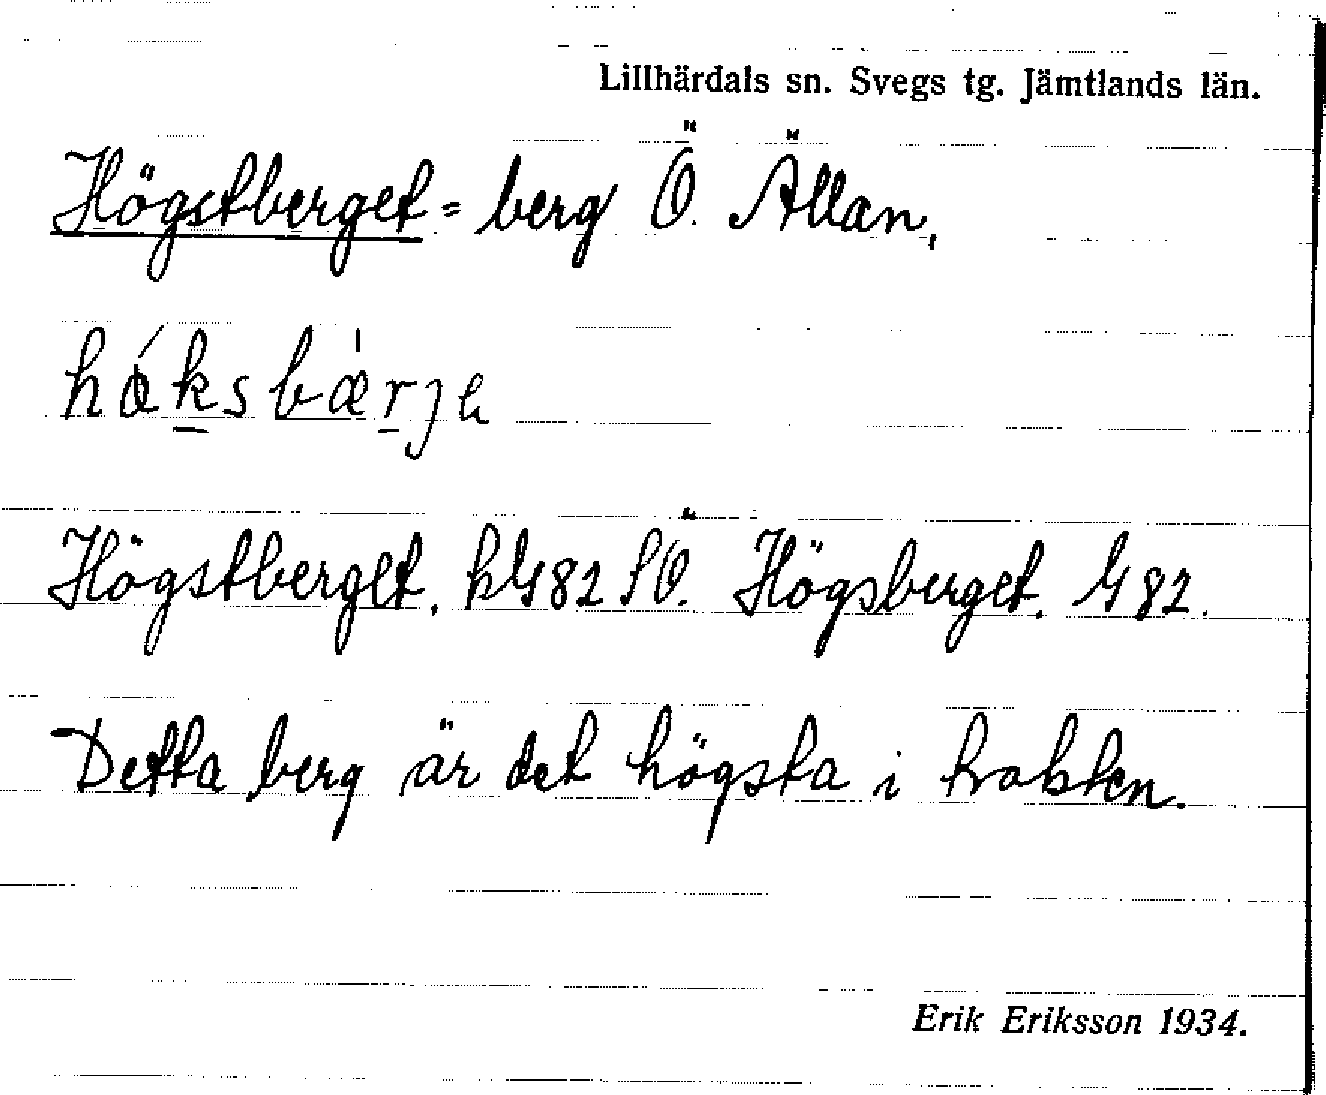 Lillhärdals sn. Svegs tg. Jämtlands län.
Högstberget = berg Ö. Ällan,
Högstberget. hG82 SÖ. Högsberget. G82.
Detta berg är det högsta i trakten.
Erik Eriksson 1934.